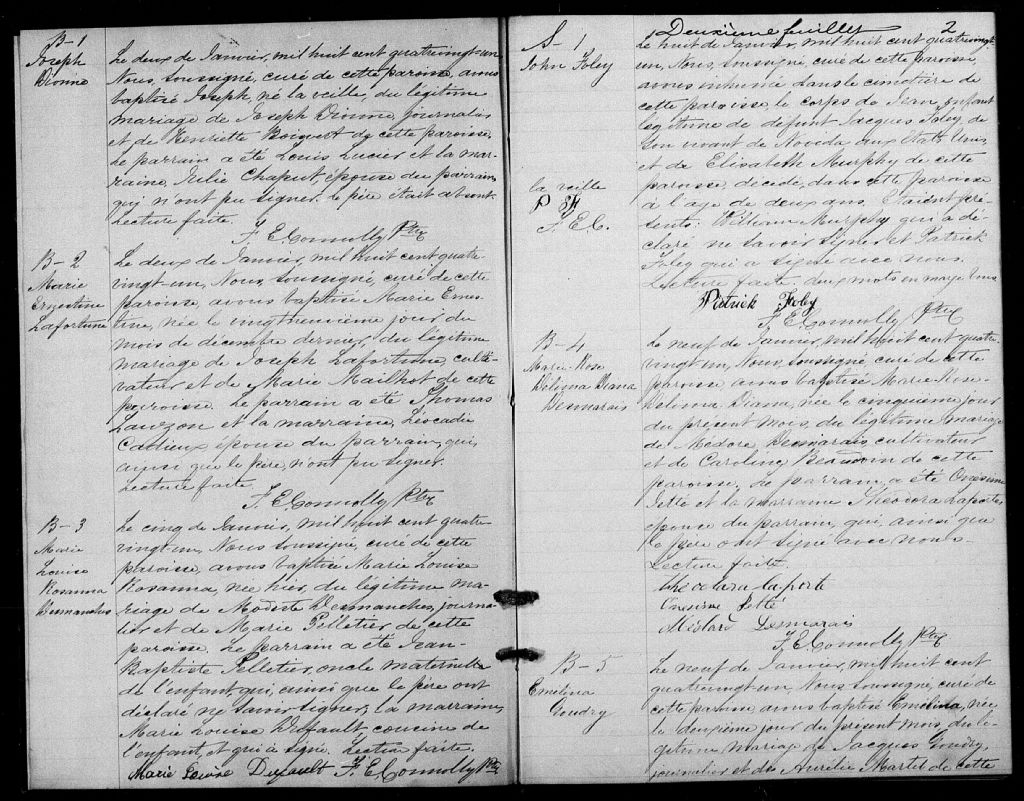 B-1
Joseph
Dionne
Le deux de Janvier, mil huit cent quatrevingt-un
Nous, soussigné, curé de cette paroisse, avons
baptisé Joseph, né la veille, du légitime
mariage de Joseph Dionne, journalier
et de Henriette Boisvert de cette paroisse.
Le parrain a été Louis Lucier et la mar-
raine, Julie Chaput, épouse du parrain,
qui n'ont pu signer. le père était absent.
Lecture faite.
F. E. Connolly Ptre
B-2
Marie
Ernestine
Lafortune
Le deux de Janvier, mil huit cent quatre-
vingt-un, Nous, soussigné, curé de cette
paroisse, avons baptisé Marie Ernes-
tine, née le vingt-neuvième jour du
mois de décembre dernier, du légitime
mariage de Joseph Lafortune, culti-
vateur et de Marie Mailhot de cette
paroisse. Le parrain a été Thomas
Lauzon et la marraine, Léocadie
Cadieux épouse du parrain, qui,
ainsi que le père, n'ont pu signer.
Lecture faite.
F. E. Connolly Ptre
B-3
Marie
Louise
Rosanna
Desmanches
Le cinq de Janvier, mil huit cent quatre-
vingt-un, Nous, soussigné, curé de cette
paroisse, avons baptisé Marie Louise
Rosanna, née hier, du légitime ma-
riage de Moïse Desmanches, journa-
lier et de Marie Pelletier de cette
paroisse. Le parrain a été Jean-
Baptiste Pelletier, oncle maternelle
de l'enfant qui, ainsi que le père ont
déclaré ne savoir signer, la marraine,
Marie Louise Dufault, cousine de
l'enfant, et qui a signé. Lecture faite.
Marie Louise Dufault F. E. Connolly Ptre
Deuxième feuillet 2
S-1
John Foley
Le huit de Janvier, mil huit cent quatrevingt-
un, Nous, soussigné, curé de cette paroisse,
avons inhumé dans le cimetière de
cette paroisse, le corps de Jean, enfant
légitime de défunt Jacques Foley, de
son vivant de Nevada aux Etats Unis,
et de Elisabeth Murphy de cette
paroisse, décédé, dans cette paroisse
à l'age de deux ans. Etaient pré-
sents: William Murphy qui a dé-
claré ne savoir signer et Patrick
Foley qui a signé avec nous.
Lecture faite deux mots en marge bons
la veille
P F
F. E. C.
Patrick Foley
F. E. Connolly Ptre
B-4
Marie-Rose
Délima Diana
Desmarais
Le neuf de Janvier, mil huit cent quatre-
vingt un, Nous, soussigné, curé de cette
paroisse avons baptisée Marie-Rose-
Délima-Diana, née le cinquième jour
du présent mois, du légitime mariage
de Médore Desmarais cultivateur
et de Caroline Beaudoin de cette
paroisse. Le parrain a été Onésime
Jetté et la marraine Théodora Laporte
épouse du parrain, qui, ainsi que
le père ont signé avec nous.
Lecture faite.
Théodora Laporte
Onésime Jetté
Médard Desmarais
F. E. Connolly Ptre
B-5
Emélina
Goudry
Le neuf de Janvier, mil huit cent
quatrevingt-un, Nous, soussigné, curé de
cette paroisse avons baptisé Emélina, née
le deuxième jour du présent mois, du lé-
gitime mariage de Jacques Goudry,
journalier et de Aurélie Martel de cette